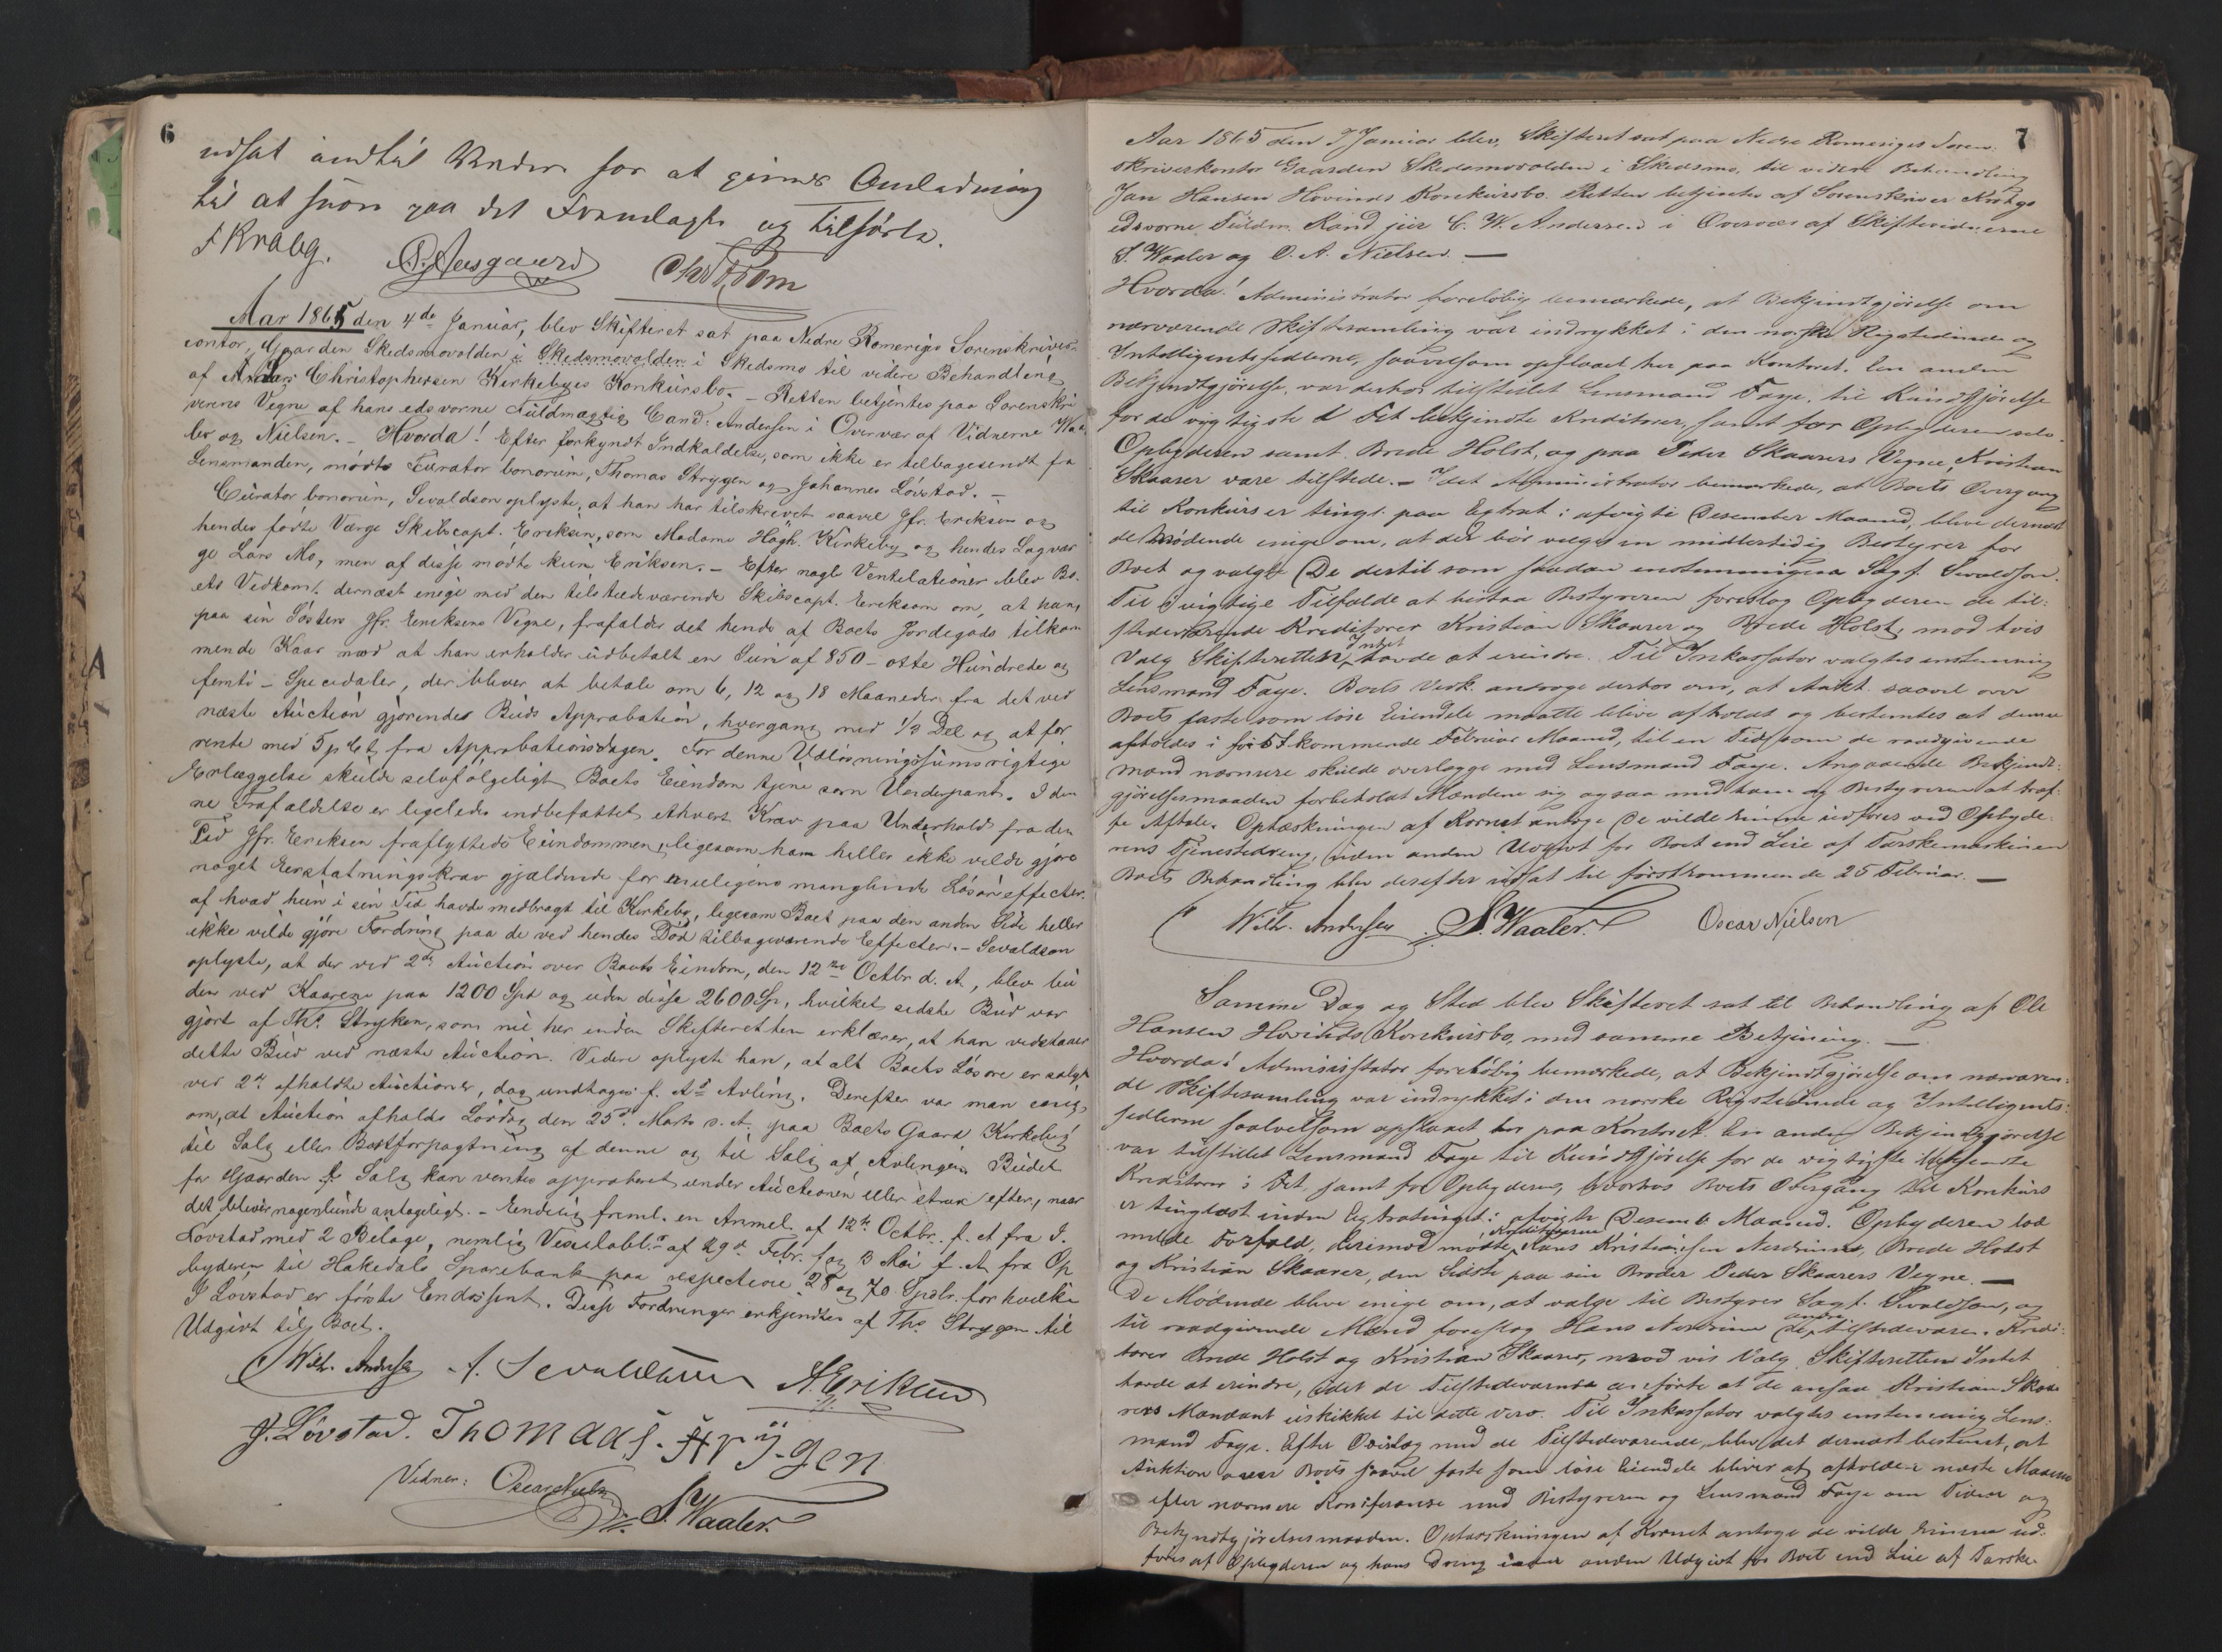 6
udsat indtil Videre for at gives Anledning
til at svare paa det Fremlagte og Tilførte.
F Krabg. O. Aasgaard Chr Strøm
Aar 1865 den 4de Januar, blev Skifteret sat paa Nedre Romeriges Sorenskriver-
contor, Gaarden Skedsmovolden i Skedsmovolden i Skedsmo til videre Behandling
af Anders Christophersen Kirkebyes Konkursbo. – Retten betjentes paa Sorenskri
verens Vegne af hans edsvorne Fuldmægtig Cand: Andersen i Overvær af Vidnerne Waa
ler og Nielsen. – Hvorda! Efter forkyndt Indkaldelse, som ikke er tilbagesendt fra
Lensmanden, mødte Curator bonorum, Thomas Strygen og Johannes Løvstad. –
Curator bonorum, Sevaldson oplyste, at han har tilskrevet saavel Jfr. Eriksen og
hendes fødte Værge Skibscapt. Eriksen, som Madame Høgh. Kirkeby og hendes Lagvær
ge Lars Mo, men af disse mødte kun Eriksen. – Efter nogle Ventilationer blev Bo-
ets Vedkom. dernæst enige med den tilstedeværende Skibscapt. Eriksen om, at han,
paa sin Søsters Jfr. Eriksens Vegne, frafalder det hende af Boets Jordegods tilkom
mende Kaar mod at han erholder udbetalt en Sum af 850 – otte Hundrede og
femti – Speciedaler, der bliver at betale om 6, 12 og 18 Maaneder fra det ved
næste Auction gjørendes Buds Approbation, hvergang med 1/3 Del og at for
rente med 5 p Ct. fra Approbationsdagen. For denne Udløsningssums rigtige
Erlæggelse skulde selvfølgeligt Boets Eiendom tjene som Underpant. I den
ne Frafaldelse er ligeledes indbefattet ethvert Krav paa Underhold fra den
Tid Jfr. Eriksen fraflyttede Eiendommen, ligesom han heller ikke vilde gjøre
noget Erstatningskrav gjældende for muligens manglende Løsøreffecter,
af hvad hun i sin Tid havde medbragt til Kirkeby, ligesom Boet paa den anden Side heller
ikke vilde gjøre Fordring paa de ved hendes Død tilbageværende Effecter. – Sevaldson
oplyste, at der ved 2de Auction over Boets Eiendom, den 12te Octbr d. A., blev bu
den ved Kaarene paa 1200 Spd og uden disse 2600 Sp, hvilket sidste Bud var
gjort af Ths. Stryken, som nu her inden Skifteretten erklærer, at han vedstaaer
dette Bud ved næste Auction. Videre oplyste han, at alt Boets Løsøre er solgt
ved 2de afholdte Auctioner, dog undtages f. A.s Avling. Derefter var man enig
om, at Auction afholdes Lørdag den 25de Marts d. A. paa Boets Gaard Kirkeby
til Salg eller Bortforpagtning af denne og til Salg af Avlingen. Budet
for Gaarden f Salg kan ventes approberet under Auctionen eller strax efter, naar
det bliver nogenlunde antageligt. – Endelig freml. en Anmel. af 12te Octbr. f. A fra J.
Løvstad med 2 Bilage, nemlig Vexelobl. af 29de Febr. f og 3 Mai f. A. fra Op
byderen til Hakedals Sparebank paa respective 28 og 70 Spdlr. for hvilke
J Løvstad er første Endossent. Disse Fordringer erkjendtes af Ths. Strygen til
Udgivt til Boet.
C Wilh. Andersen A. Sevaldson A. Eriksen
J. Løvstad. Thomaas. Strygen
Vidner: Oscar Nielsen S. Waaler.
7
Aar 1865 den 7 Januar blev Skifteret sat paa Nedre Romeriges Soren-
skriverkontor Gaarden Skedsmovolden i Skedsmo, til videre Behandling
Jan Hansen Hovinds Konkursbo. Retten betjentes af Sorenskriver Krabgs
edsvorne Fuldm. Kand jur C. W. Andersen i Overvær af Skiftevidnerne
S. Waaler og O. A. Nielsen. –
Hvorda! Administrator foreløbig bemærkede, at Bekjendtgjørelse om
nærværende Skiftesamling var indrykket i den norske Rigstidende og
Intelligentssedlerne, saavelsom opslaaet her paa Kontoret. En anden
Bekjendtgjørelse var derhos tilstillet Lensmand Faye. til Kundgjørelse
for de vigtigste i Det bekjendte Kreditorer, samt for Opbyderen selv.
Opbyderen samt Brede Holst, og paa Peder Skaarers Vegne, Kristian
Skaarer vare tilstede. – Idet Administrator bemærkede, at Boets Overgang
til Konkurs er tingl. paa Extrat: i afvigte Desember Maaned, bleve dernæst
de Mødende enige om, at der bør vælges en midlertidig Bestyrer for
Boet og valgte De dertil som saadan enstemmigen Sagf. Sevaldson.
Til i vigtige Tilfælde at bistaa Bestyreren foreslog Opbyderen de til-
stedeværende Kreditorer Kristian Skaarer og Brede Holst, mod hvis
Valg Skifteretten Intet havde at erindre. Til Inkassator valgtes enstemmig
Lensmand Faye. Boets Vedk. androge derhos om, at Aukt. saavel over
Boets faste som løse Eiendele maatte blive afholdt og bestemtes at denne
afholdes i førstkommende Februar Maaned, til en Tid som de raadgivende
Mænd nærmere skulde overlægge med Lensmand Faye. Angaaende Bekjendt-
gjørelsesmaaden forbeholdt Mændene sig ogsaa med ham og Bestyreren at træf-
fe Aftale. Optærskningen af Kornet antoge De vilde kunne udføres ved Opbyde-
rens Tjenestedreng, uden anden Udgivt for Boet end Leie af Tærskemaskinen
Boets Behandling blev derefter udsat til førstkommende 25 Februar. –
C Wilh. Andersen. S. Waaler. Oscar Nielsen
Samme Dag og Sted blev Skifteret sat til Behandling af Ole
Hansen Hovinds Konkursbo, med samme Betjening. –
Hvorda! Administrator foreløbig bemærkede, at Bekjendtgjørelse om nærværen-
de Skiftesamling var indrykket i den norske Rigstidende og Intelligents-
sedlerne saavelsom opslaaet her paa Kontoret. En anden Bekjendtgjørelse
var tilstillet Lensmand Faye til Kundgjørelse for de vigtigste bekjendte
Kreditorer i Det samt for Opbyderen, hvorhos Boets Overgang til Konkurs
er tinglæst inden Extratinget i afvigte Desembr Maaned. Opbyderen lod
melde Forfald, derimod mødte Kreditorerne Hans Kristiansen Nerdrum, Brede Holst
og Kristian Skaarer, den Sidste paa sin Broder Peder Skaarers Vegne. –
De Mødende bleve enige om, at vælge til Bestyrer Sagf. Sevaldson, og
til raadgivende Mænd foreslog Hans Nerdrum de andre tilstedeværen. Kredi-
torer Brede Holst og Kristian Skaarer, mod vis Valg Skifteretten Intet
havde at erindre, idet de Tilstedeværende anførte at de ansaa Kristian Skaa
rers Mandant uskikket til dette Verv. Til Inkassator valgtes enstemmig Lens-
mand Faye. Efter Overlæg med de Tilstedeværende, blev det dernæst bestemt, at
Auktion over Boets saavel faste som løse Eiendele bliver at afholde i næste Maaned
efter nærmere Konferanse med Bestyreren og Lensmand Faye om Tiden og
Bekjendtgjørelsesmaaden. Optærskningen af Kornet antoge de vilde kunne ud-
føres af Opbyderen og hans Dreng uden anden Udgivt for Boet end Leie af Tærske-